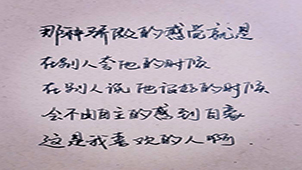 那种骄傲的感觉就是
在别人夸他的时候
在别人说他很好的时候
会不由自主的感到自豪
这是我喜欢的人啊